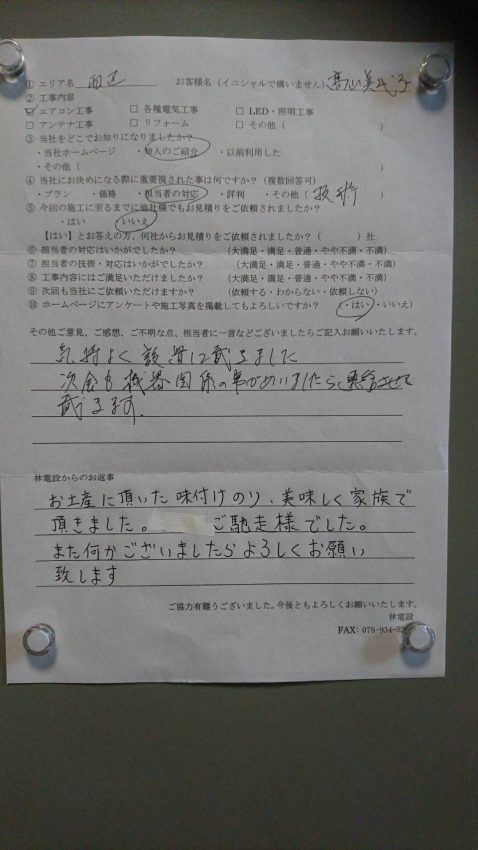 ① エリア名 西区 お客様名（イニシャルで構いません）高山美代子
② 工事内容
☑ エアコン工事 □ 各種電気工事 □ LED・照明工事
□ アンテナ工事 □ リフォーム □ その他（ ）
③ 当社をどこでお知りになりましたか？
・当社ホームページ ・知人のご紹介 ・以前利用した
・その他（ ）
④ 当社にお決めになる際に重要視された事は何ですか？（複数回答可）
・プラン ・価格 ・担当者の対応 ・評判 ・その他（ 技術 ）
⑤ 今回の施工に至るまでに他社様でもお見積りをご依頼されましたか？
・はい ・いいえ
【はい】とお答えの方、何社からお見積りをご依頼されましたか？（ ）社
⑥ 担当者の対応はいかがでしたか？ （大満足・満足・普通・やや不満・不満）
⑦ 担当者の技術・対応はいかがでしたか？ （大満足・満足・普通・やや不満・不満）
⑧ 工事内容にはご満足いただけましたか？ （大満足・満足・普通・やや不満・不満）
⑨ 次回も当社にご依頼いただけますか？ （依頼する・わからない・依頼しない）
⑩ ホームページにアンケートや施工写真を掲載してもよろしいですか？ （・はい・いいえ）
その他ご意見、ご感想、ご不明な点、担当者に一言などございましたらご記入お願いいたします。
気持よく設置して戴きました
次会も機器関係の事がありましたら連絡させて
戴きます.
林電設からのお返事
お土産に頂いた味付けのり、美味しく家族で
頂きました。 ご馳走様でした。
また何かございましたらよろしくお願い
致します
ご協力有難うございました。今後ともよろしくお願いいたします。
林電設
FAX：078-934-5